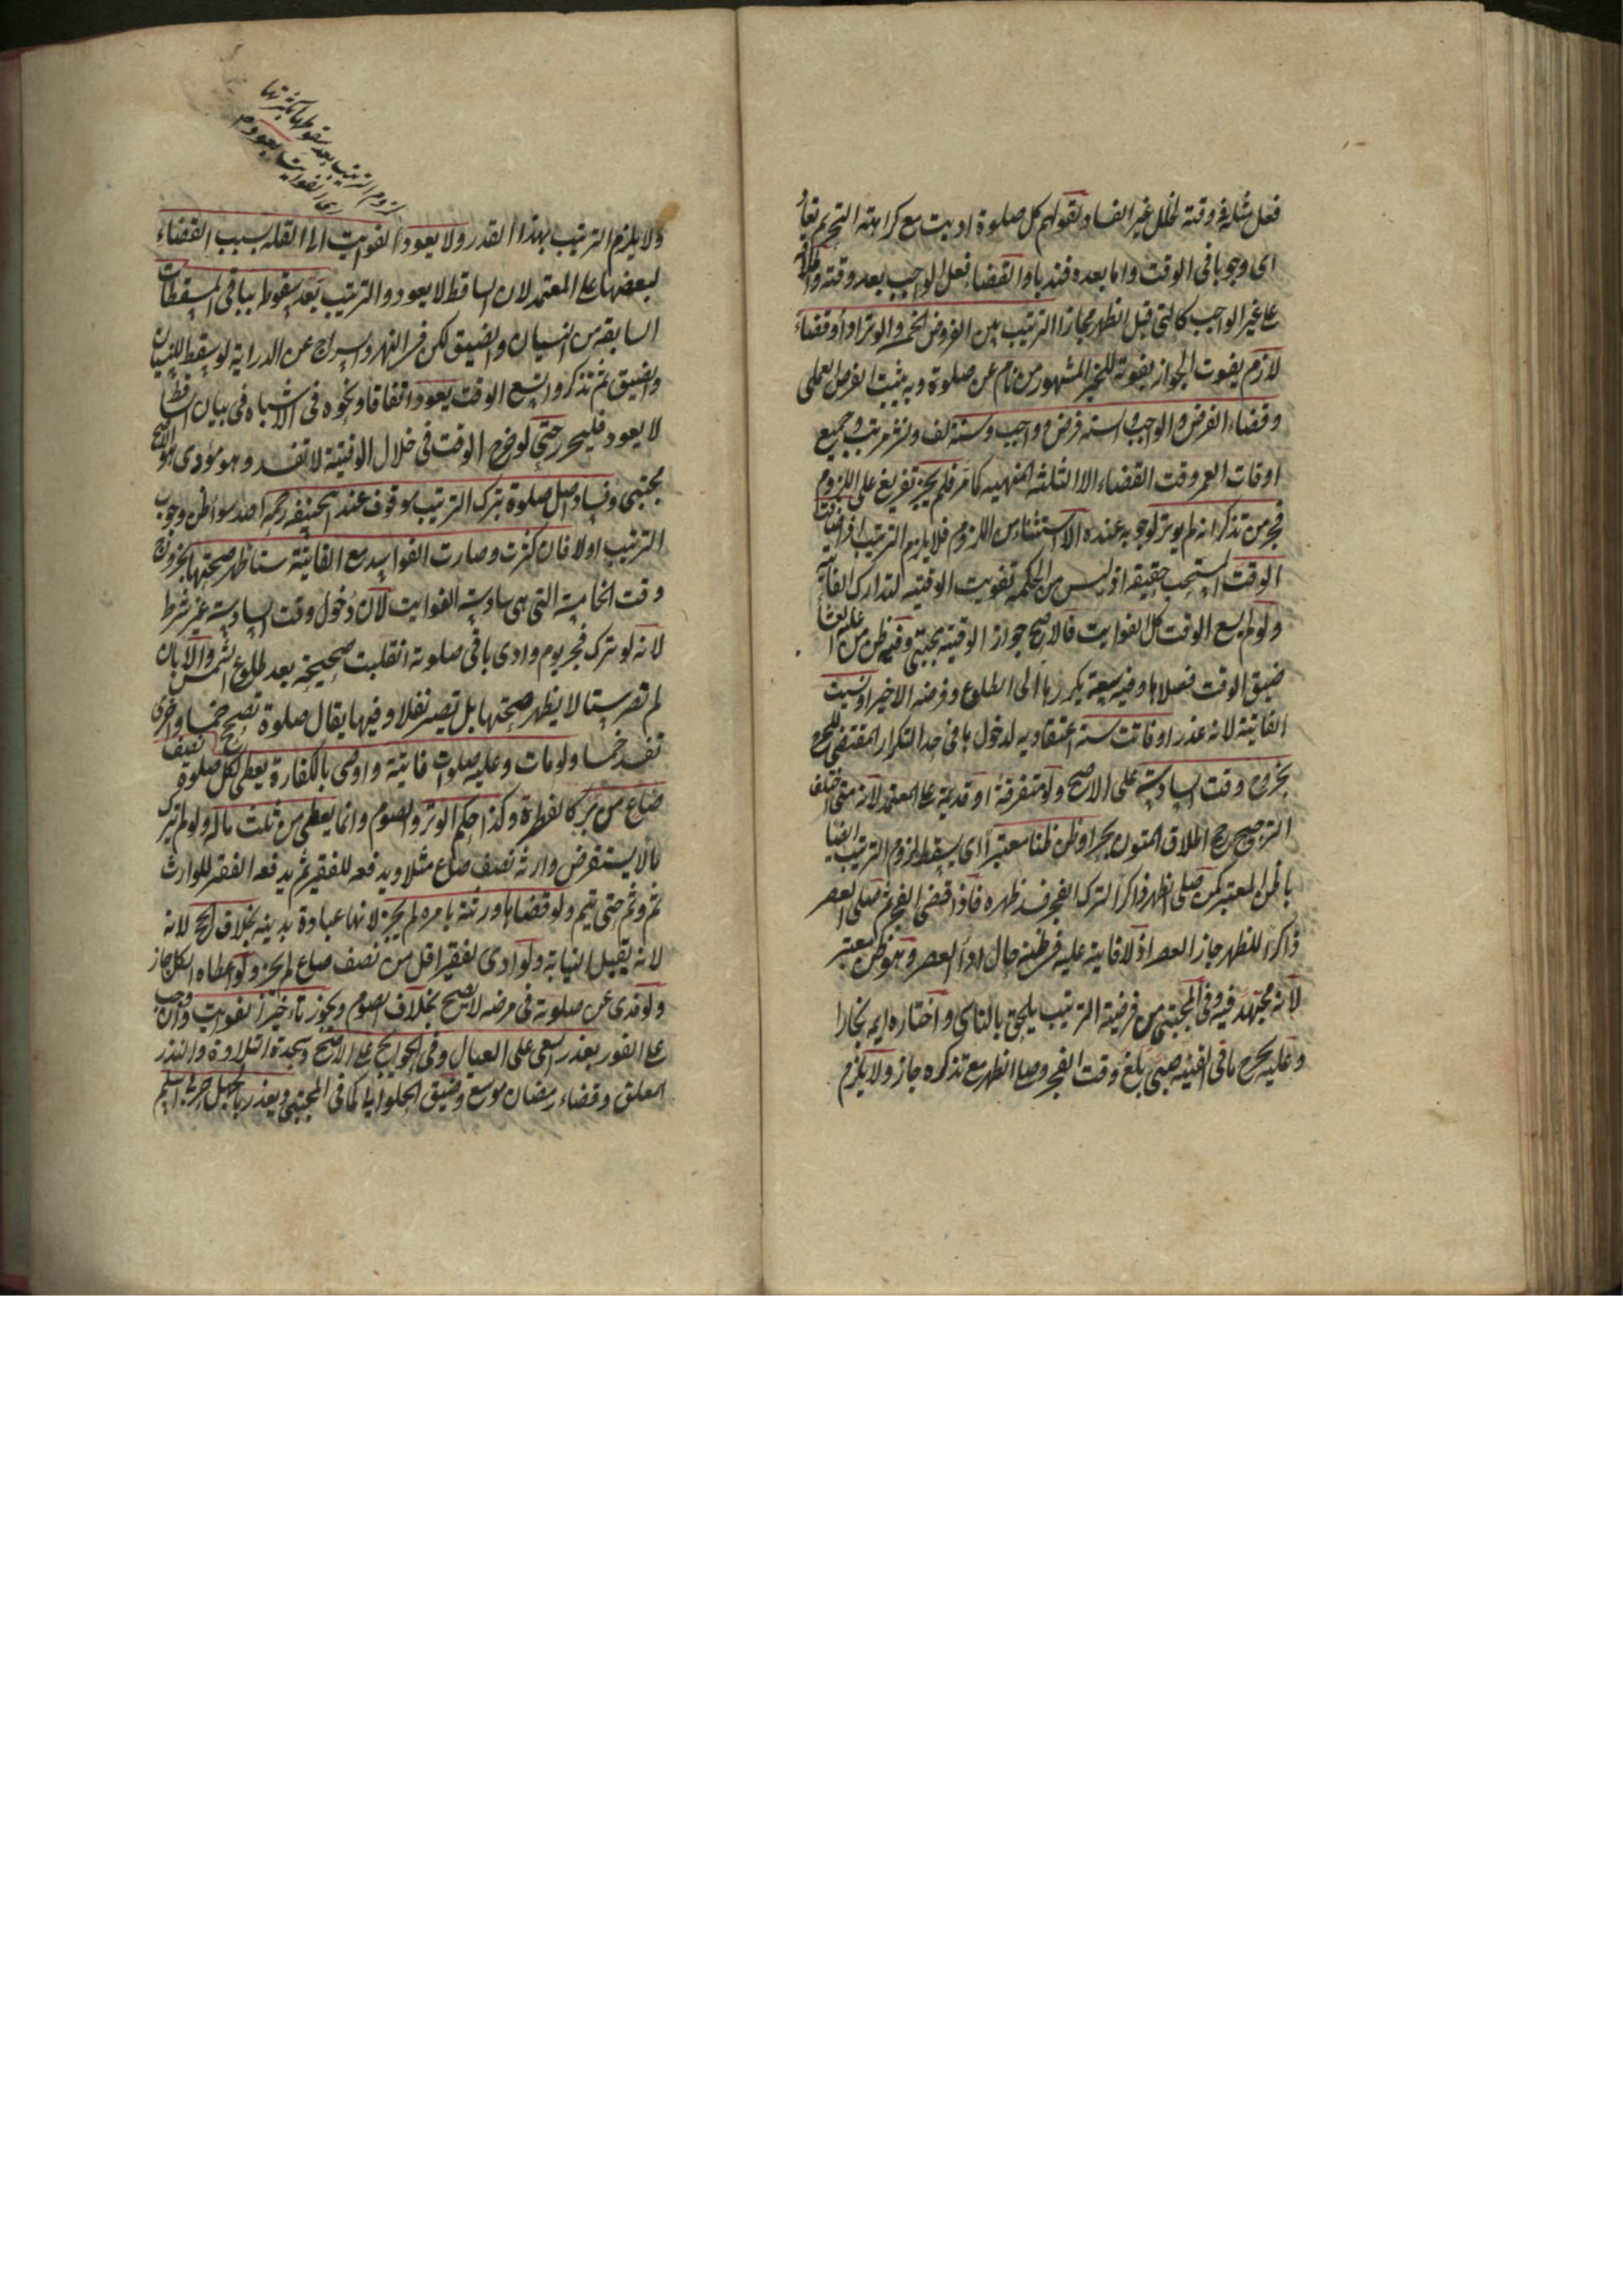 فعل مثله فى وقته لخلل غير الفساد لقولهم كل صلوة اديت مع كراهة التحريم تعاد
اى وجوبا فى الوقت واما بعده فندبا والقضاء فعل الواجب بعد وقته واطلاقه
على غير الواجب كالتى قبل الظهر مجازا الترتيب بين الفروض الخمسة والوتر اداء وقضاء
لازم يفوت الجواز بفوته للخبر المشهور من نام عن صلوة وبه يثبت الفرض العملى
وقضاء الفرض والواجب والسنة فرض وواجب وسنة لف ونشر مرتب وجميع
اوقات العمر وقت القضاء الا الثلثة المنهية كما مر فلم يجز تفريع على اللزوم
فجر من تذكر انه لم يوتر لوجوبه عنده الا استثناء من اللزوم فلا يلزم الترتيب اذا ضاق
الوقت المستحب حقيقة اذ ليس من الحكمة تفويت الوقتية لتدارك الفائتة
ولو لم يسع الوقت كل الفوايت فالاصح جواز الوقتية مجتبى وفيه ظن من عليه العشا
ضيق الوقت فصلاها وفيه سعة يكررها الى الطلوع وفرضه الاخير او نسيت
الفائتة لانه عذر او فاتت ستة اعتقادية لدخولها فى حد التكرار المقتضى للحرج
بخروج وقت السادسة على الاصح ولو متفرقة او قديمة على المعتمد لانه متى اختلف
الترجيح رجح اطلاق المتون بحر او ظن ظنا معتبرا اى يسقط لزوم الترتيب ايضا
بالظن المعتبر كمن صلى الظهر ذاكرا لترك الفجر فسد ظهره فاذا قضى الفجر ثم صلى العصر
ذاكرا للظهر جاز العصر اذ لا فايتة عليه فى ظنه حال اداء العصر وهو ظن معتبر
لانه مجتهد فيه وفى المجتبى من فرضية الترتيب يلحق بالناسى واختاره ايمة بخارا
وعليه يخرج ما فى القنية صبى بلغ وقت الفجر وصلى الظهر مع تذكره جاز ولا يلزم
لزوم الترتيب بعد سقوطها بكثرتها
اى الفوايت بعود
ولا يلزم الترتيب بهذا القدر ولا يعود الفوايت الى القلة بسبب القضاء
لبعضها على المعتمد لان الساقط لا يعود والترتيب بعد سقوطه بباقى المسقطات
السابقة من النسيان والضيق لكن فى النهر والسراج عن الدراية لو سقط للنسيان
والضيق ثم تذكر واتسع الوقت يعود اتفاقا ونحوه فى الاشباه فى بيان الساقط
لا يعود فليحرر حتى لو خرج الوقت فى خلال الوقتية لا تفسد وهو مؤدى هو الاصح
مجتبى وفساد اصل صلوة بترك الترتيب موقوف عند ابى حنيفة رحمه الله سواء ظن وجوب
الترتيب اولا فان كثرت وصارت الفواسد مع الفايتة ستا ظهر صحتها بخروج
وقت الخامسة التى هى سادسة الفوايت لان دخول وقت السادسة غير شرط
لانه لو ترك فجر يوم وادى باقى صلوته انقلبت صحيحة بعد طلوع الشمس والا بان
لم تصر ستا لا يظهر صحتها بل تصير نفلا وفيها يقال صلوة تصحح خمسا واخرى
تفسد خمسا ولو مات وعليه صلوات فايتة واوصى بالكفارة يعطى لكل صلوة نصف
صاع من بر كالفطرة وكذا حكم الوتر والصوم وانما يعطى من ثلث ماله ولو لم يترك
مالا يستقرض وارثه نصف صاع مثلا ويدفعه للفقير ثم يدفعه الفقير للوارث
ثم وثم حتى يتم ولو قضاها ورثته بامره لم يجز لانها عبادة بدنية بخلاف الحج لانه
لانه يقبل النيابة ولو ادى لفقير اقل من نصف صاع لم يجز ولو اعطاه الكل جاز
ولو فدى عن صلوته فى مرضه لا يصح بخلاف الصوم ويجوز تاءخير الفوايت وان وجب
على الفور بعذر السعى على العيال وفى الحوايج على الاصح وسجدة التلاوة والنذر
المعلق وقضاء رمضان موسع وضيق الحلوانى كما فى المجتبى ويعذر بالجهل حربى اسلم